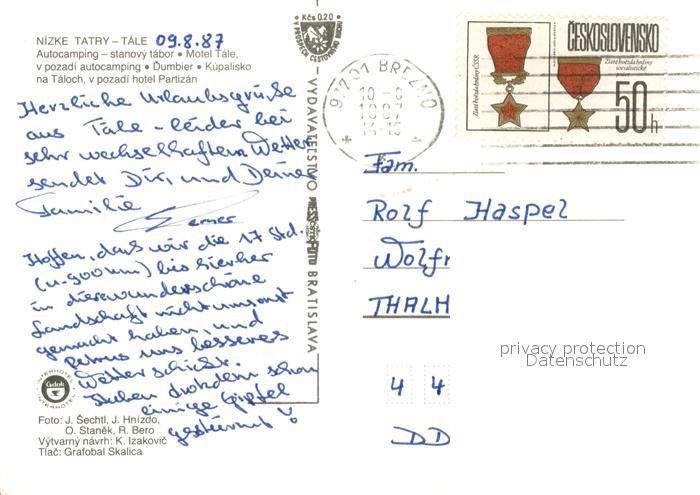 NÍZKE TATRY – TÁLE 09.8.87
Autocamping – stanový tábor • Motel Tále,
v pozadí autocamping • Ďumbier • Kúpalisko
na Táloch, v pozadí hotel Partizán
Herzliche Urlaubsgrüsse
aus Tále - leider bei
sehr wechselhaftem Wetter
sendet Dir, und Deiner
Familie
Werner
Hoffen, dass wir die 17 Std.
(u. 900 km) bis hierher
in diese wunderschöne
Landschaft nicht umsonst
gemacht haben, und
Petrus uns besseres
Wetter schickt.
Haben trotzdem schon
einige Gipfel
gestürmt!
INTERHOTEL
Čedok
INTERHOTEL
Foto: J. Šechtl, J. Hnízdo,
O. Staněk, R. Bero
Výtvarný návrh: K. Izakovič
Tlač: Grafobal Skalica
Kčs 0.20
V PROSPECH CESTOVNÉHO RUCHU
VYDAVATEĽSTVO
BRATISLAVA
977 01 BREZNO
Zlatá hvězda hrdiny ČSSR
ČESKOSLOVENSKO
Zlatá hvězda hrdiny
socialistické
práce
50h
Fam.
Rolf Haspel
Wolfr
THALH
44
DD
privacy protection
Datenschutz